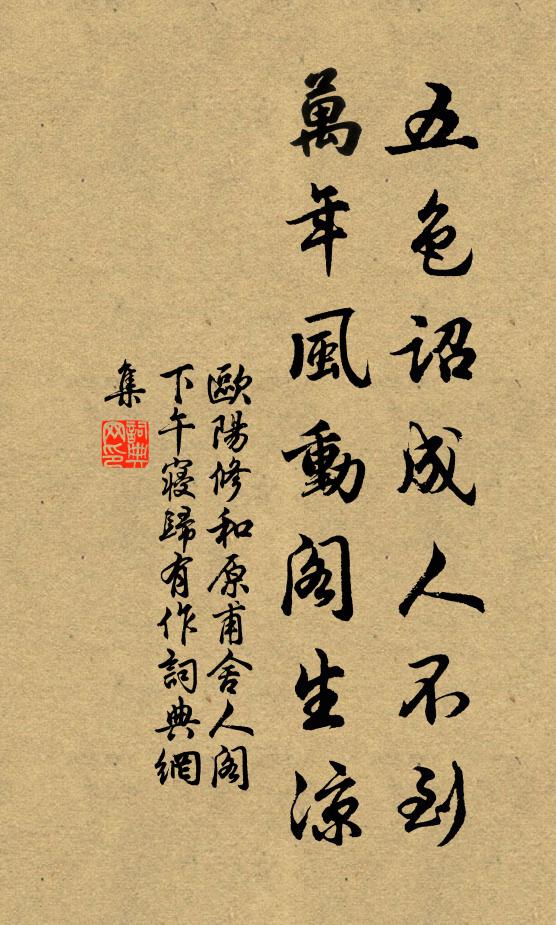 五色詔成人不到
萬年風動閣生涼
歐陽修和原甫舍人閣
下午寢歸有作詞典網
集
詞典
网印